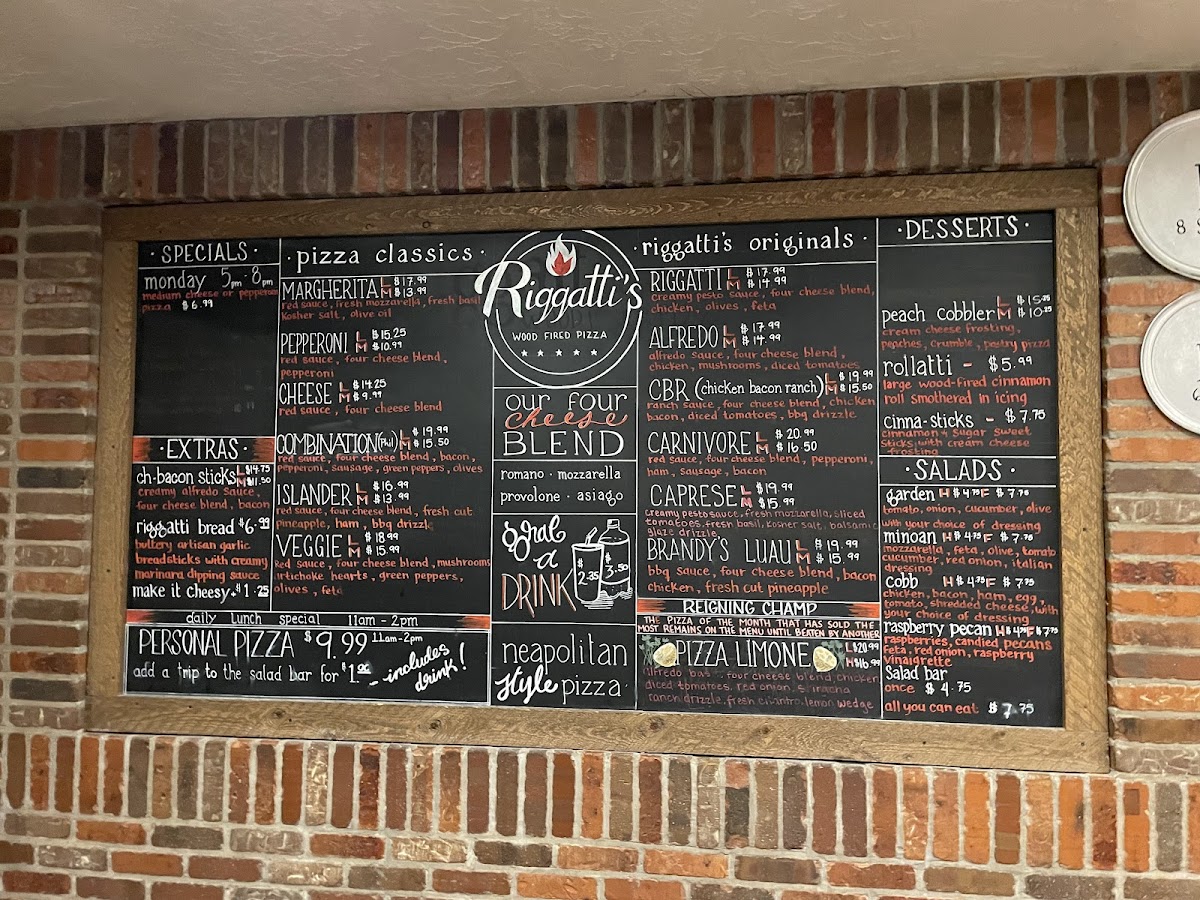 ·SPECIALS·
monday 5pm-8pm
medium cheese or pepperoni
pizza $6.99
·EXTRAS·
ch-bacon sticks L $14.75
M $11.50
creamy alfredo sauce,
four cheese blend, bacon
riggatti bread $6.99
buttery artisan garlic
breadsticks with creamy
marinara dipping sauce
make it cheesy +$1.25
·pizza classics·
MARGHERITA L $17.99
M $13.99
red sauce, fresh mozzarella, fresh basil
Kosher salt, olive oil
PEPPERONI L $15.25
M $10.99
red sauce, four cheese blend,
pepperoni
CHEESE L $14.25
M $9.99
red sauce, four cheese blend
COMBINATION (Phil) L $19.99
M $15.50
red sauce, four cheese blend, bacon,
pepperoni, sausage, green peppers, olives
ISLANDER L $16.99
M $13.99
red sauce, four cheese blend, fresh cut
pineapple, ham, bbq drizzle
VEGGIE L $18.99
M $15.99
Red sauce, four cheese blend, mushrooms
artichoke hearts, green peppers,
olives, feta
daily lunch special 11am-2pm
PERSONAL PIZZA $9.99 11am-2pm
add a trip to the salad bar for $1.00 - includes
drink!
Riggatti's
WOOD FIRED PIZZA
our four
cheese
BLEND
romano · mozzarella
provolone · asiago
a
DRINK
$2.35
$3.50
neapolitan
style pizza
·riggatti's originals·
RIGGATTI L $17.99
M $14.99
creamy pesto sauce, four cheese blend,
chicken, olives, feta
ALFREDO L $17.99
M $14.99
alfredo sauce, four cheese blend,
chicken, mushrooms, diced tomatoes
CBR (chicken bacon ranch) L $19.99
M $15.50
ranch sauce, four cheese blend, chicken
bacon, diced tomatoes, bbq drizzle
CARNIVORE L $20.99
M $16.50
red sauce, four cheese blend, pepperoni,
ham, sausage, bacon
CAPRESE L $19.99
M $15.99
creamy pesto sauce, fresh mozzarella, sliced
tomatoes, fresh basil, Kosher salt, balsamic
glaze drizzle
BRANDY'S LUAU L $19.99
M $15.99
bbq sauce, four cheese blend, bacon
chicken, fresh cut pineapple
REIGNING CHAMP
THE PIZZA OF THE MONTH THAT HAS SOLD THE
MOST REMAINS ON THE MENU UNTIL BEATEN BY ANOTHER
PIZZA LIMONE L $20.99
M $16.99
alfredo base, four cheese blend, chicken
diced tomatoes, red onion, sriracha
ranch drizzle, fresh cilantro, lemon wedge
·DESSERTS·
peach cobbler L $15.25
M $10.25
cream cheese frosting,
peaches, crumble, pastry pizza
rollatti - $5.99
large wood-fired cinnamon
roll smothered in icing
cinna-sticks - $7.75
cinnamon & sugar sweet
sticks with cream cheese
frosting
·SALADS·
garden H $4.75 F $7.75
tomato, onion, cucumber, olive
with your choice of dressing
minoan H $4.75 F $7.75
mozzarella, feta, olive, tomato
cucumber, red onion, italian
dressing
cobb H $4.75 F $7.75
chicken, bacon, ham, egg,
tomato, shredded cheese, with
your choice of dressing
raspberry pecan H $4.75 F $7.75
raspberries, candied pecans
feta, red onion, raspberry
vinaigrette
Salad bar
once $4.75
all you can eat $7.75
8